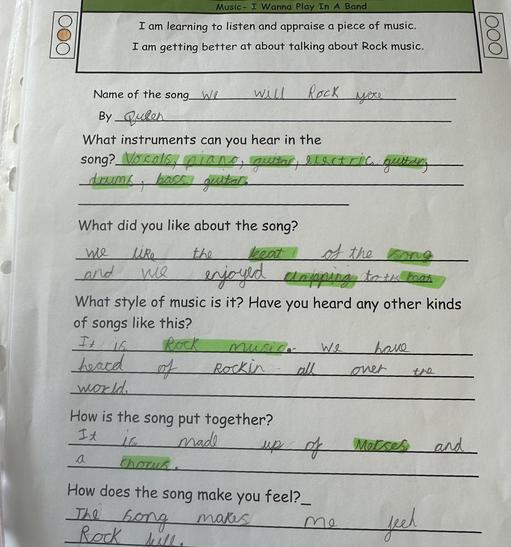 Music- I Wanna Play In A Band
I am learning to listen and appraise a piece of music.
I am getting better at about talking about Rock music.
Name of the song we will Rock you
By Queen
What instruments can you hear in the
song? Vocals, piano, guitar, electric guitar,
drums, bass guitar.
What did you like about the song?
we like the beat of the song
and we enjoyed clapping to the beat
What style of music is it? Have you heard any other kinds
of songs like this?
It is Rock music. we have
heard of Rockin all over the
world.
How is the song put together?
It is made up of and
a chorus.
How does the song make you feel?_
The song makes me feel
Rock